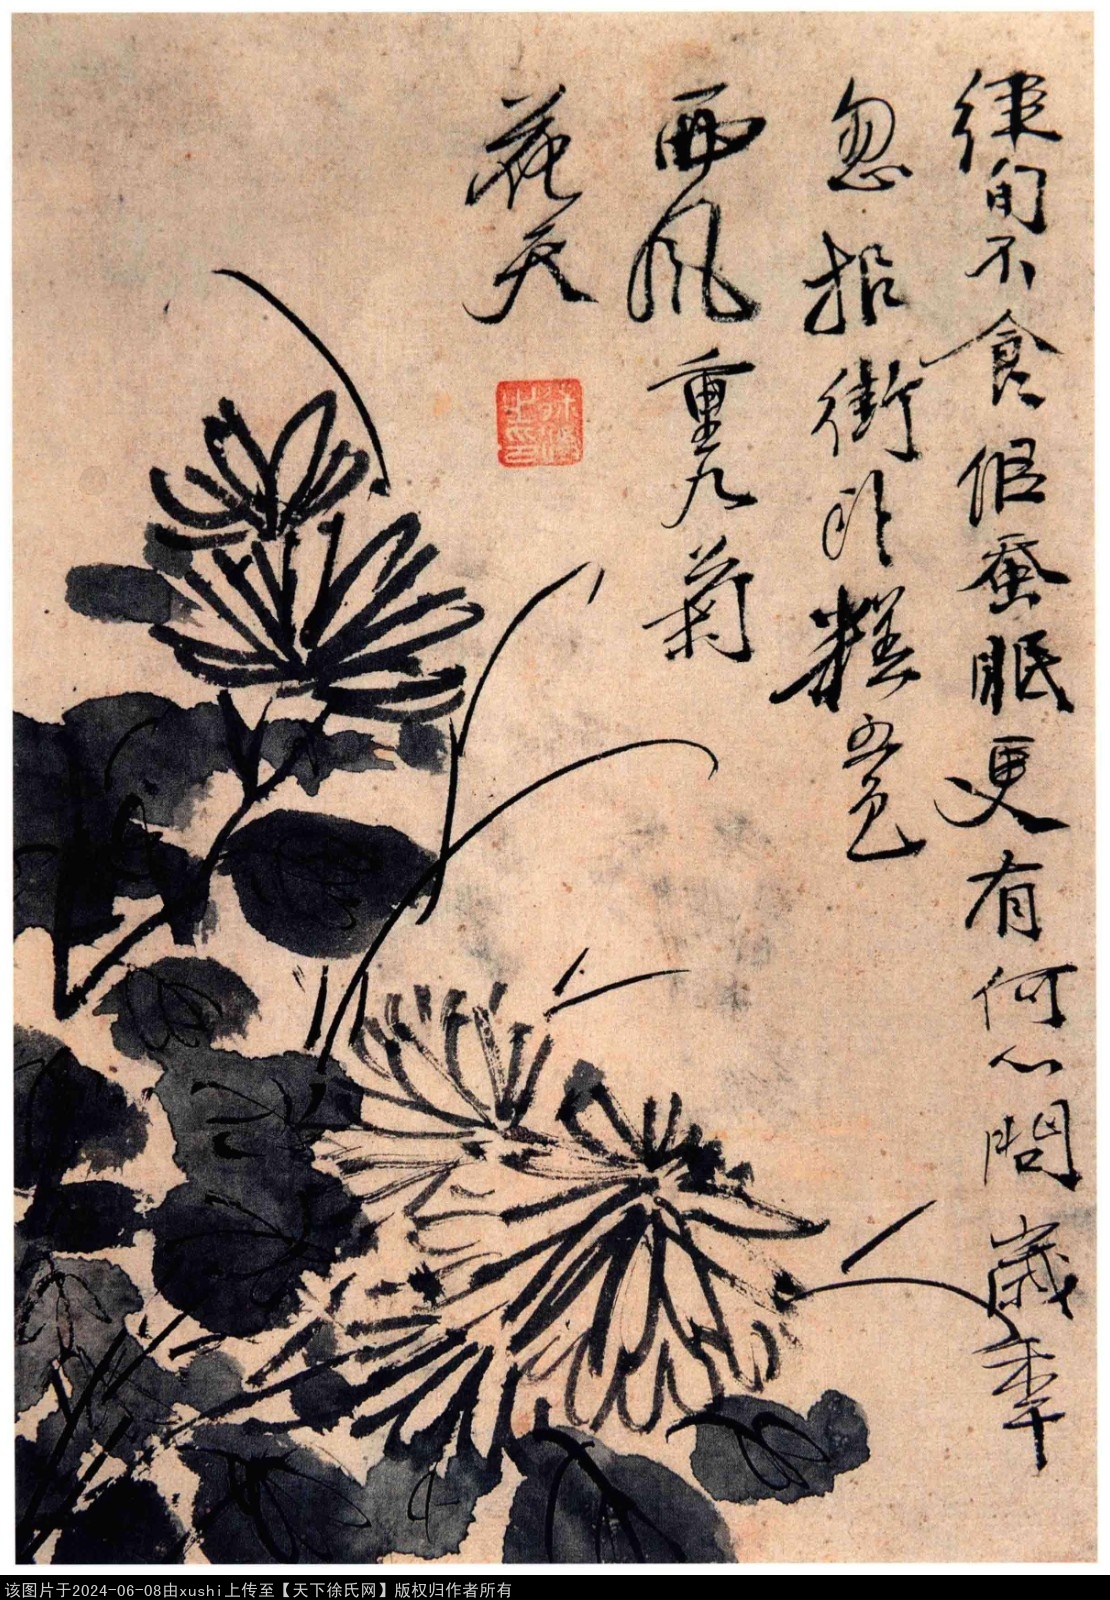 經旬不食似蚕眠更有何心問歲年
忽报街頭糕五色
西風重九菊
花天
徐渭之印
该图片于2024-06-08由xushi上传至【天下徐氏网】版权归作者所有